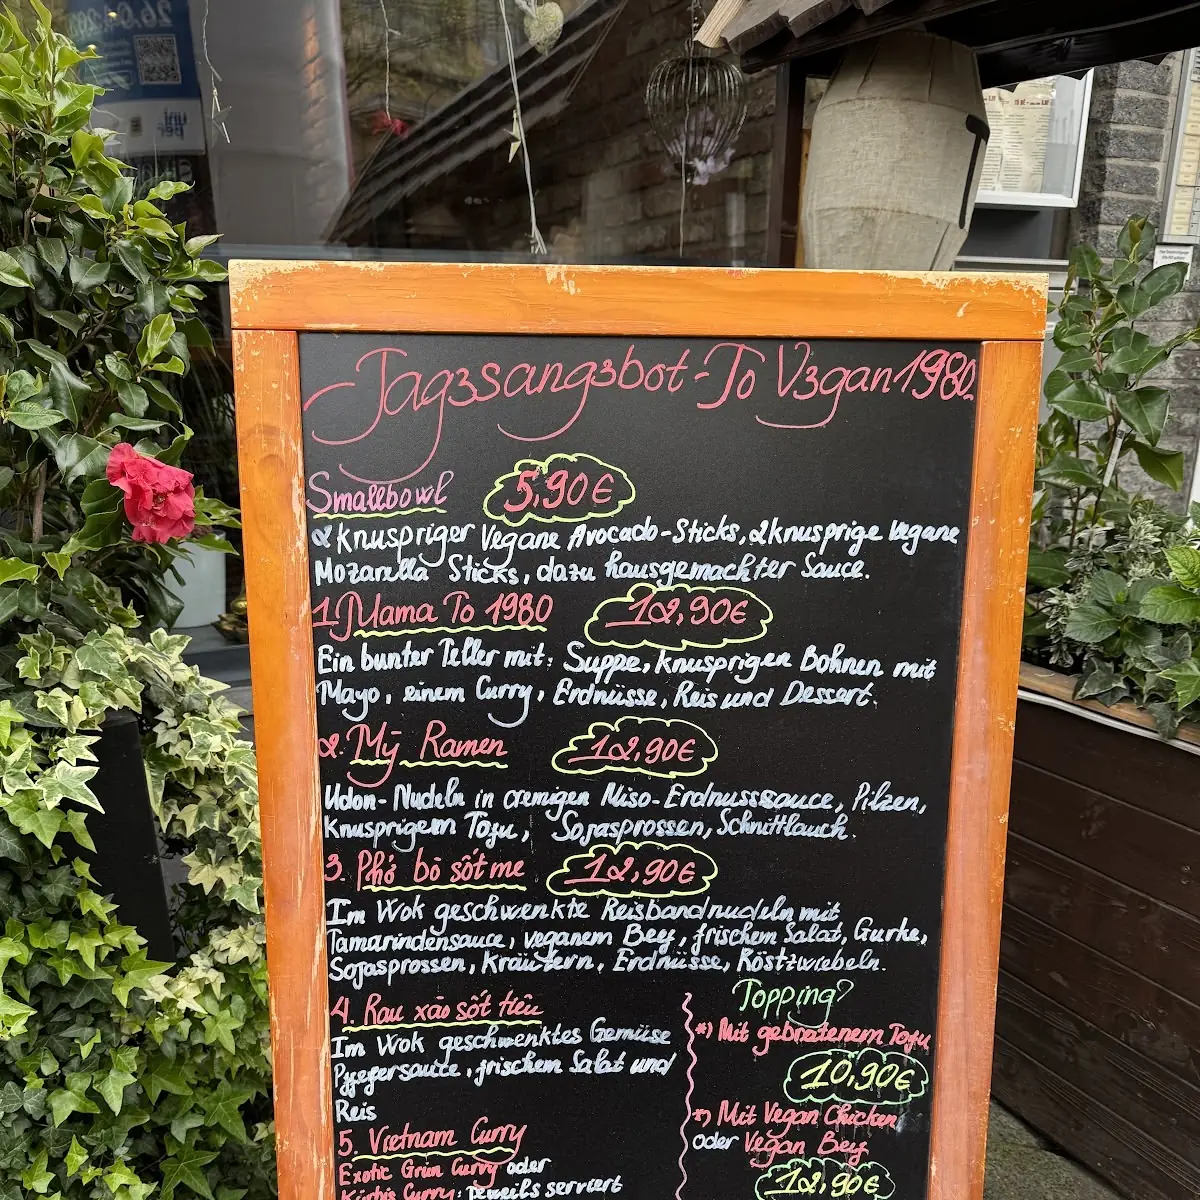 Tagesangebot-To Vegan 1980
Smallbowl 5,90€
2 knuspriger Vegane Avocado-Sticks, 2 knusprige vegane
Mozarella Sticks, dazu hausgemachter Sauce.
1. Mama To 1980 12,90€
Ein bunter Teller mit: Suppe, knusprigen Bohnen mit
Mayo, einem Curry, Erdnüsse, Reis und Dessert.
2. Mỳ Ramen 12,90€
Udon-Nudeln in cremigen Miso-Erdnusssauce, Pilzen,
knusprigem Tofu, Sojasprossen, Schnittlauch.
3. Phở bò sốt me 12,90€
Im Wok geschwenkte Reisbandnudeln mit
Tamarindensauce, veganem Beef, frischem Salat, Gurke,
Sojasprossen, Kräutern, Erdnüsse, Röstzwiebeln.
4. Rau xào sốt tiêu
Im Wok geschwenktes Gemüse
Pfeffersauce, frischem Salat und
Reis
5. Vietnam Curry
Exotic Grün Curry oder
Kürbis Curry: Jeweils serviert
Topping?
*) Mit gebratenem Tofu
10,90€
*) Mit Vegan Chicken
oder Vegan Beef
12,90€